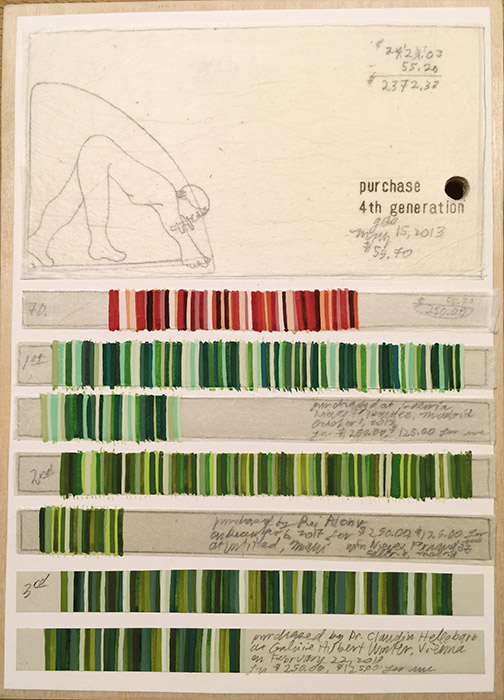 $ 2421.03
55.20
$ 2372.38
purchase
4th generation
May 15, 2013
$55.70
70.
$ 55.70
250.00
1st
purchased at Galería
Nieves Fernández, Madrid
October 1, 2013
for $250.00, $125.00 for me
2nd
purchased by Rui
on December 6, 2017 for $250.00, $125.00 for me
at Untitled, Miami with Nieves Fernández
Galería, Madrid
3rd
purchased by Dr. Claudia
at Galerie Hubert Winter, Vienna
on February 22, 2018
for $250.00, $125.00 for me